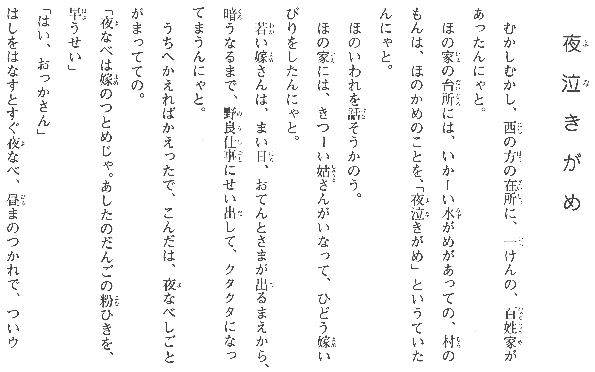 夜泣きがめ
むかしむかし、西の方の在所に、一けんの、百姓家が
あったんにゃと。
ほの家の台所には、いかーい水がめがあっての、村の
もんは、ほのかめのことを、「夜泣きがめ」というていた
んにゃと。
ほのいわれを話そうかのう。
ほの家には、きつーい姑さんがいなって、ひどう嫁い
びりをしたんにゃと。
若い嫁さんは、まい日、おてんとさまが出るまえから、
暗うなるまで、野良仕事にせい出して、クタクタになっ
てまうんにゃと。
うちへかえればかえったで、こんだは、夜なべしごと
がまってての。
「夜なべは嫁のつとめじゃ。あしたのだんごの粉ひきを、
早うせい」
「はい、おっかさん」
はしをはなすとすぐ夜なべ、昼まのつかれで、ついウ